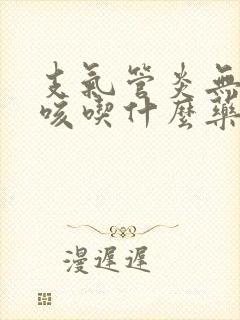 支氣管炎無
咳喫什麼藥
漫遲遲